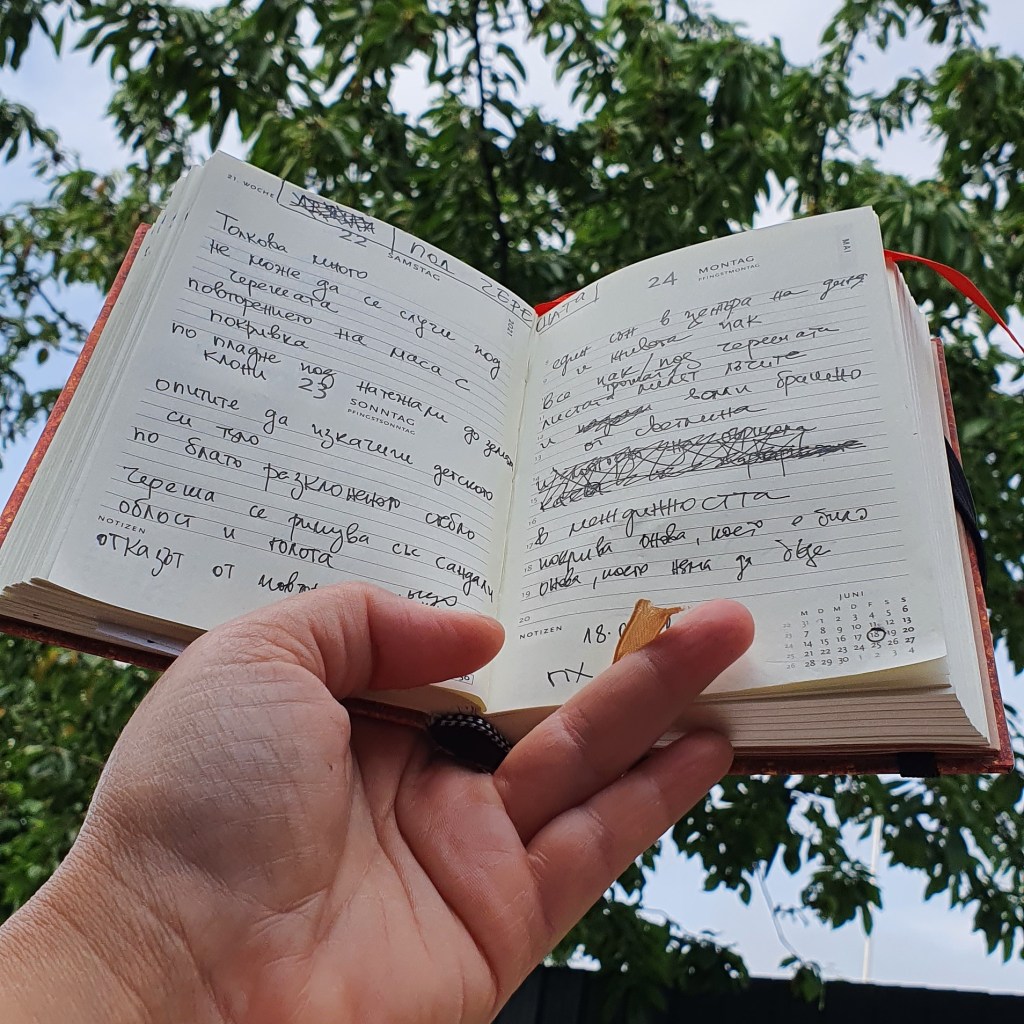 21. WOCHE
ПОД ЧЕРЕ
22
SAMSTAG
2021
Толкова много
не може да се случи под
черешата
повторението на маса с
покривка
по пладне под натежали до земята
клони
23
SONNTAG
PFINGSTSONNTAG
опитите да изкачиш детското
си тяло
по благо разклоненото стебло
череша се рисува със сандали
облост и голота
NOTIZEN
отказът от
ШАТА
24 MONTAG
PFINGSTMONTAG
MAI
един сън в центъра на деня
и живота пак
все пак под черешата
листата мелят лъчите
и вали брашно
от светлина
в междинността
покрива онова, което е било
онова, което няма да бъде
17
18
19
20
NOTIZEN
18.
ПХ
JUNI
M D M D F S S
22 31 1 2 3 4 5 6
23 7 8 9 10 11 12 13
24 14 15 16 17 18 19 20
25 21 22 23 24 25 26 27
26 28 29 30 1 2 3 4